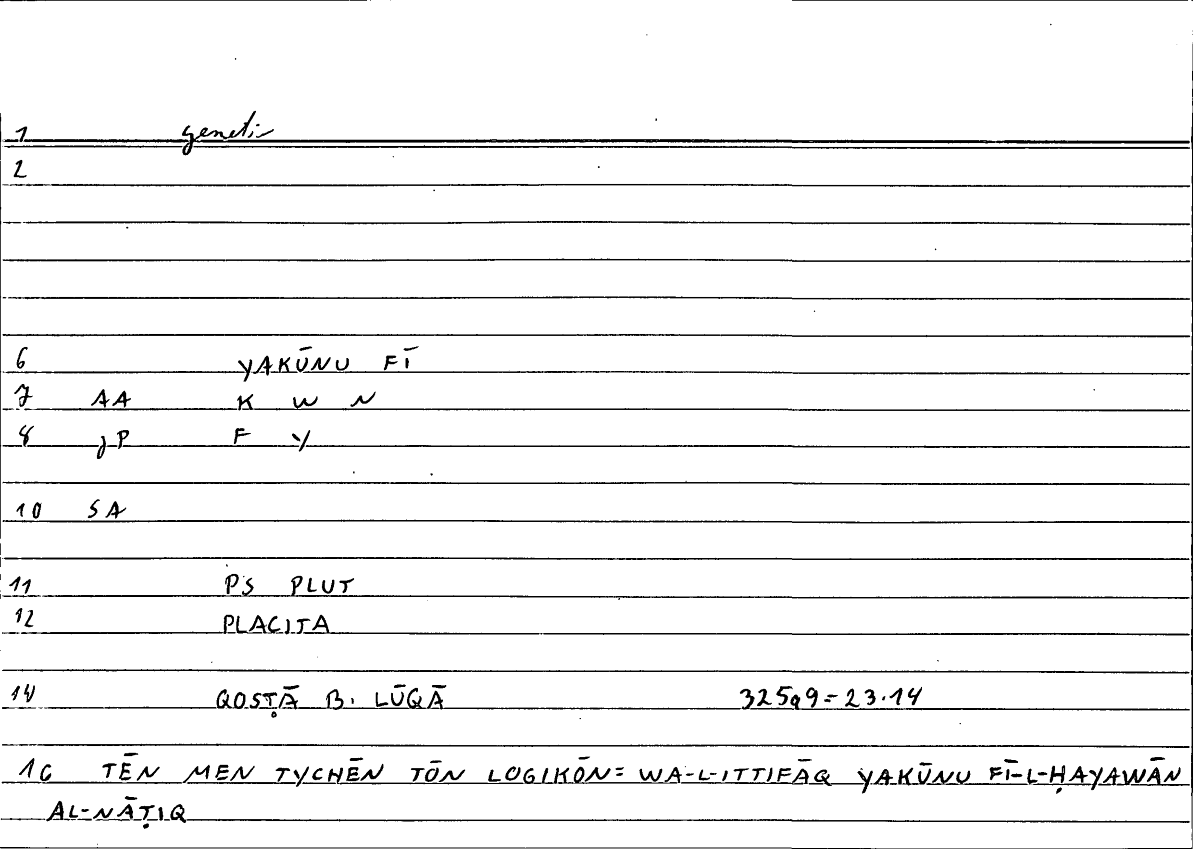 1 geneti-
2
6 YAKŪNU FĪ
7 AA K W N
8 JP F Y
10 SA
11 PS PLUT
12 PLACITA
14 QOSṬĀ B. LŪQĀ 325a9=23.14
16 TĒN MEN TYCHĒN TŌN LOGIKŌN= WA-L-ITTIFĀQ YAKŪNU FĪ-L-ḤAYAWĀN
AL-NĀṬIQ